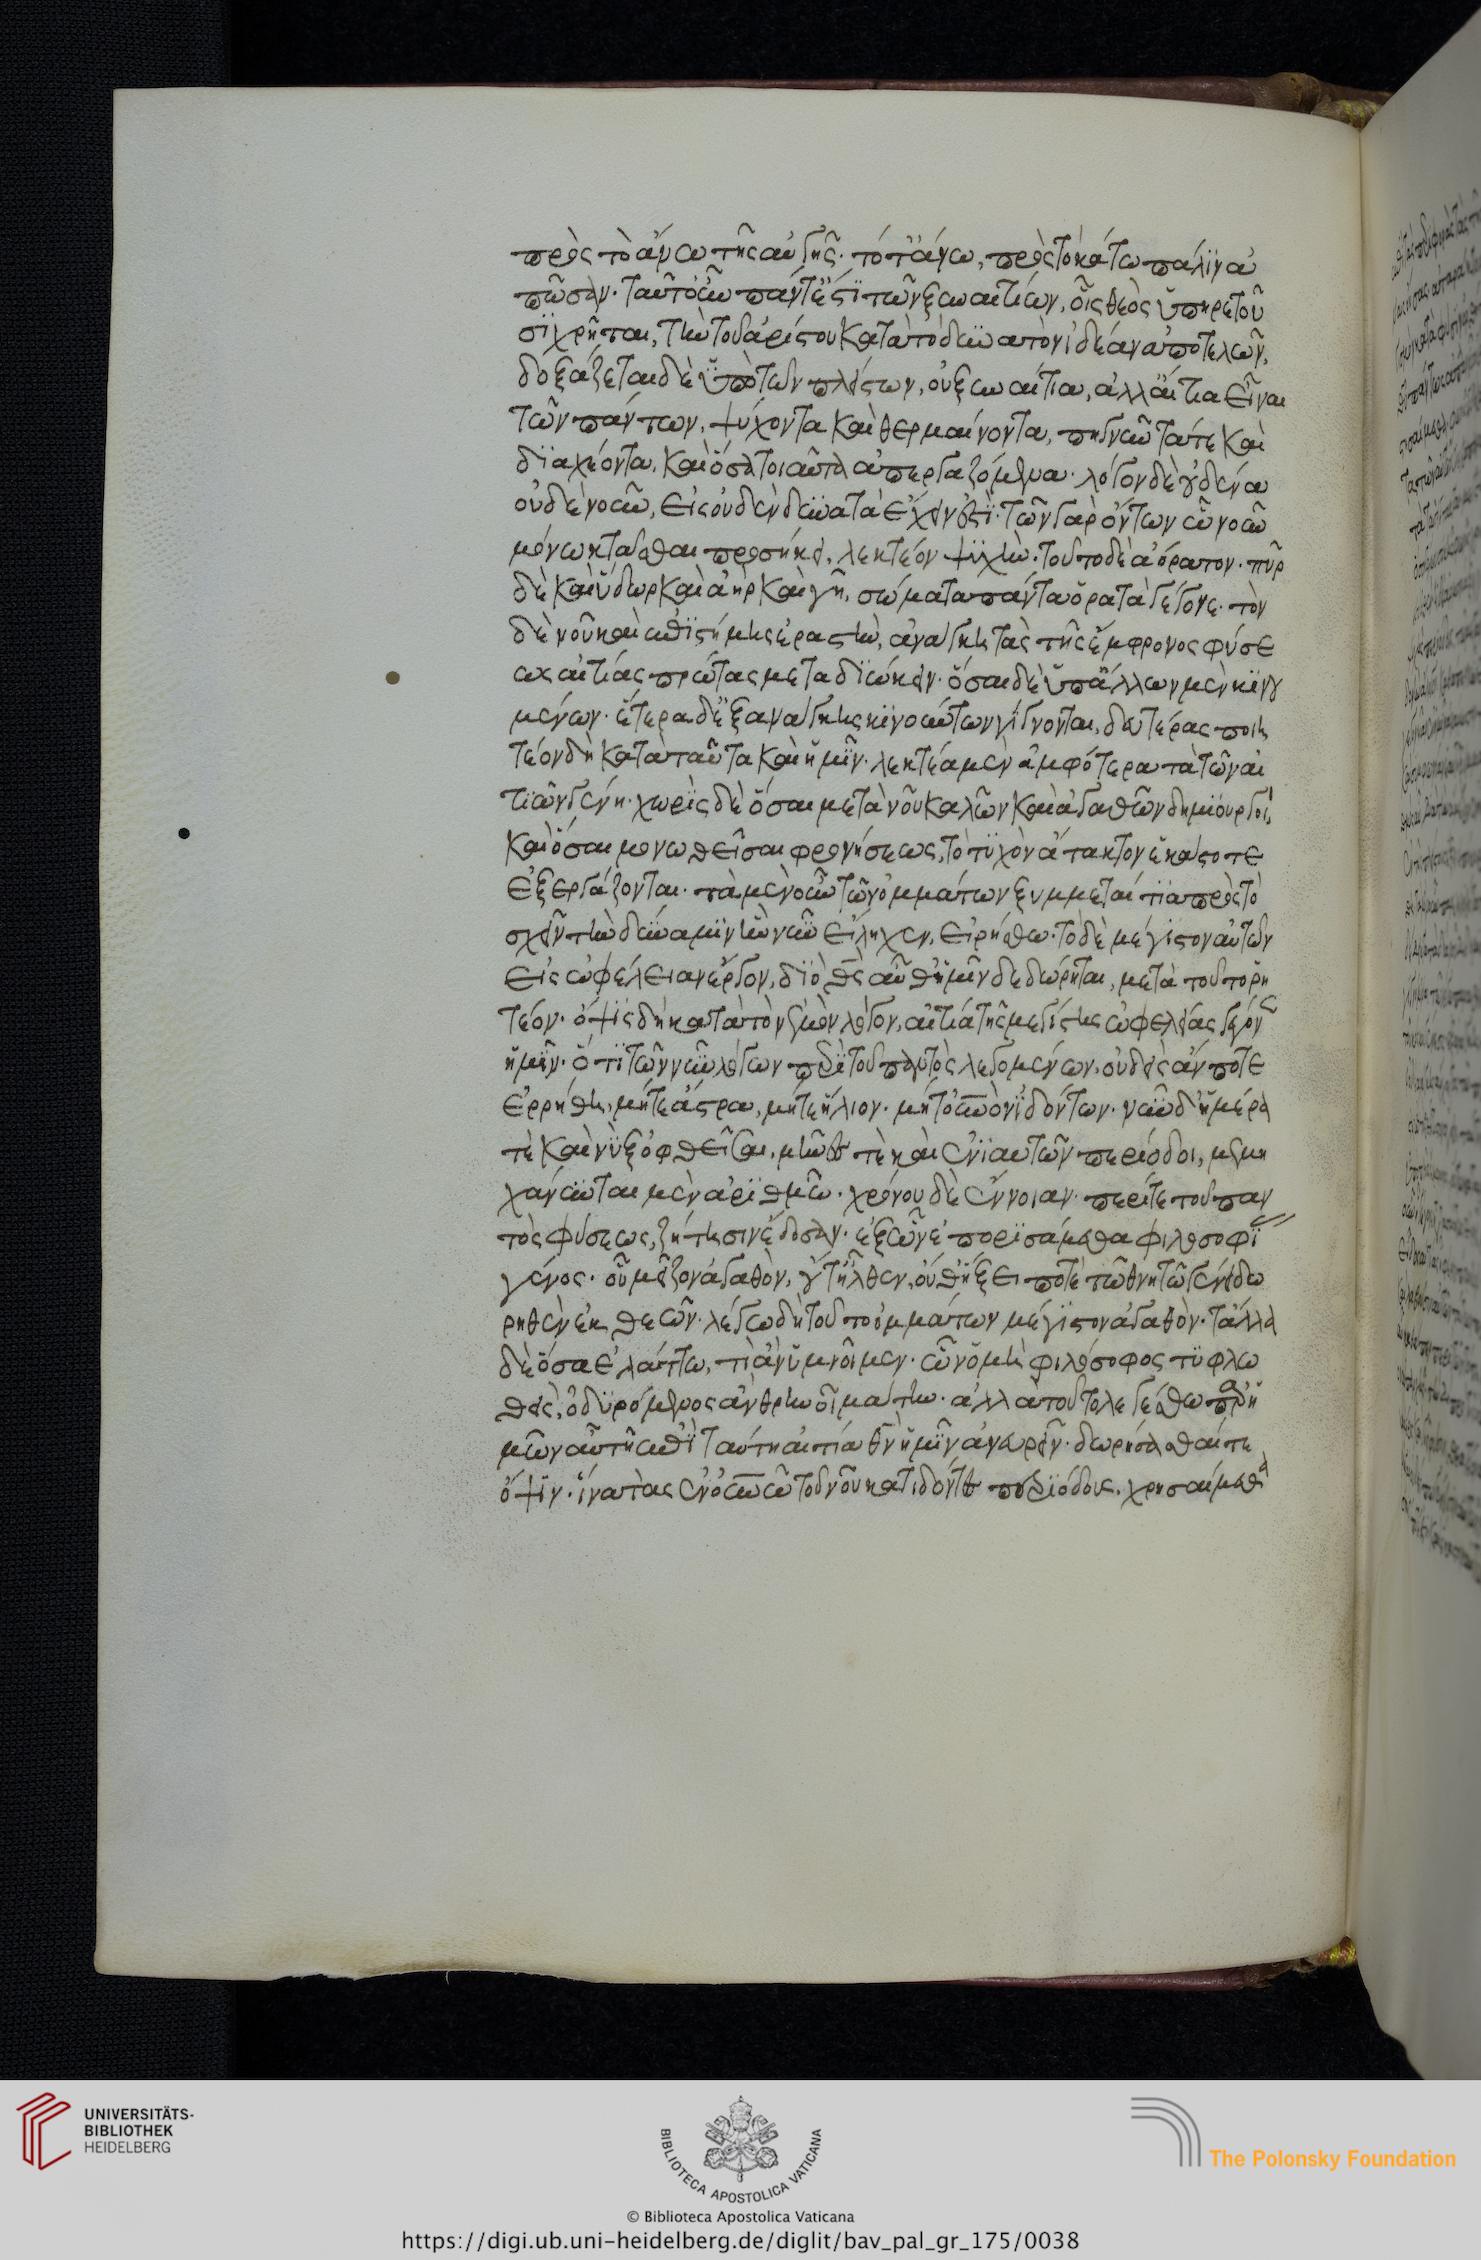 πρὸς τὸ ἄνω τῆς αὐγῆς· τό τ' ἄνω, πρὸς τὸ κάτω πάλιν ἀ
πῶσαν· ταῦτ' οὖν πάντ' ἐστὶ τῶν ξυναιτίων, οἷς θεὸς ὑπηρετοῦ
σι χρῆται, τὴν τοῦ ἀρίστου κατὰ τὸ δυνατὸν ἰδέαν ἀποτελῶν,
δοξάζεται δὲ ὑπὸ τῶν πλείστων, οὐ ξυναίτια, ἀλλ' αἴτια εἶναι
τῶν πάντων, ψύχοντα καὶ θερμαίνοντα, πηγνῦντά τε καὶ
διαχέοντα, καὶ ὅσα τοιαῦτα ἀπεργαζόμενα· λόγον δὲ οὐδένα
οὐδὲ νοῦν, εἰς οὐδὲν δυνατὰ ἔχειν ἐστί· τῶν γὰρ ὄντων ᾧ νοῦν
μόνῳ κτᾶσθαι προσήκει, λεκτέον ψυχήν· τοῦτο δὲ ἀόρατον· πῦρ
δὲ καὶ ὕδωρ καὶ ἀὴρ καὶ γῆ, σώματα πάντα ὁρατὰ γέγονε· τὸν
δὲ νοῦ καὶ ἐπιστήμης ἐραστὴν, ἀνάγκη τὰς τῆς ἔμφρονος φύσε
ως αἰτίας πρώτας μεταδιώκειν· ὅσαι δὲ ὑπ' ἄλλων μὲν κινου
μένων· ἕτερα δὲ ἐξ ἀνάγκης κινούντων γίγνονται, δευτέρας ποιη
τέον δὴ κατὰ ταῦτα καὶ ἡμῖν· λεκτέα μὲν ἀμφότερα τὰ τῶν αἰ
τιῶν γένη· χωρὶς δὲ ὅσαι μετὰ νοῦ καλῶν καὶ ἀγαθῶν δημιουργοί,
καὶ ὅσαι μονωθεῖσαι φρονήσεως, τὸ τυχὸν ἄτακτον ἑκάστοτε
ἐξεργάζονται· τὰ μὲν οὖν τῶν ὀμμάτων ξυμμεταίτια πρὸς τὸ
σχεῖν τὴν δύναμιν ἣν νῦν εἴληχεν, εἰρήσθω· τὸ δὲ μέγιστον αὐτῶν
εἰς ὠφέλειαν ἔργον, διὸ θεὸς αὔθ' ἡμῖν δεδώρηται, μετὰ τοῦτο ῥη
τέον· ὄψις δὴ κατὰ τὸν ἐμὸν λόγον, αἰτία τῆς μεγίστης ὠφελείας γέγον
ἡμῖν· ὅτι τῶν νῦν λόγων περὶ τοῦ παντὸς λεγομένων, οὐδεὶς ἄν ποτε
ἐρρήθη, μήτε ἄστρα, μήτε ἥλιον· μήτ' οὐρανὸν ἰδόντων· νῦν δ' ἡμέρα
τὲ καὶ νὺξ ὀφθεῖσαι, μῆνές τε καὶ ἐνιαυτῶν περίοδοι, μεμη
χάνηνται μὲν ἀριθμὸν· χρόνου δὲ ἔννοιαν· περί τε τοῦ παν
τὸς φύσεως, ζήτησιν ἔδοσαν· ἐξ ὧν ἐπορισάμεθα φιλοσοφί
γένος· οὗ μεῖζον ἀγαθὸν, οὔτ' ἦλθεν, οὔθ' ἥξει ποτὲ τῷ θνητῷ γένει δω
ρηθὲν ἐκ θεῶν· λέγω δὴ τοῦτο ὀμμάτων μέγιστον ἀγαθὸν· τἄλλα
δὲ ὅσα ἐλάττω, τί ἂν ὑμνοῖμεν· ὧν ὁ μὴ φιλόσοφος τυφλω
θεὶς, ὀδυρόμενος ἂν θρηνοῖ μάτην· ἀλλὰ τοῦτο λεγέσθω παρ' ἡ
μῶν αὕτη ἐπὶ ταύτῃ αἰτία θεὸν ἡμῖν ἀνευρεῖν· δωρήσασθαί τε
ὄψιν· ἵνα τὰς ἐν οὐρανῷ τοῦ νοῦ κατιδόντες περιόδους, χρησαίμεθα